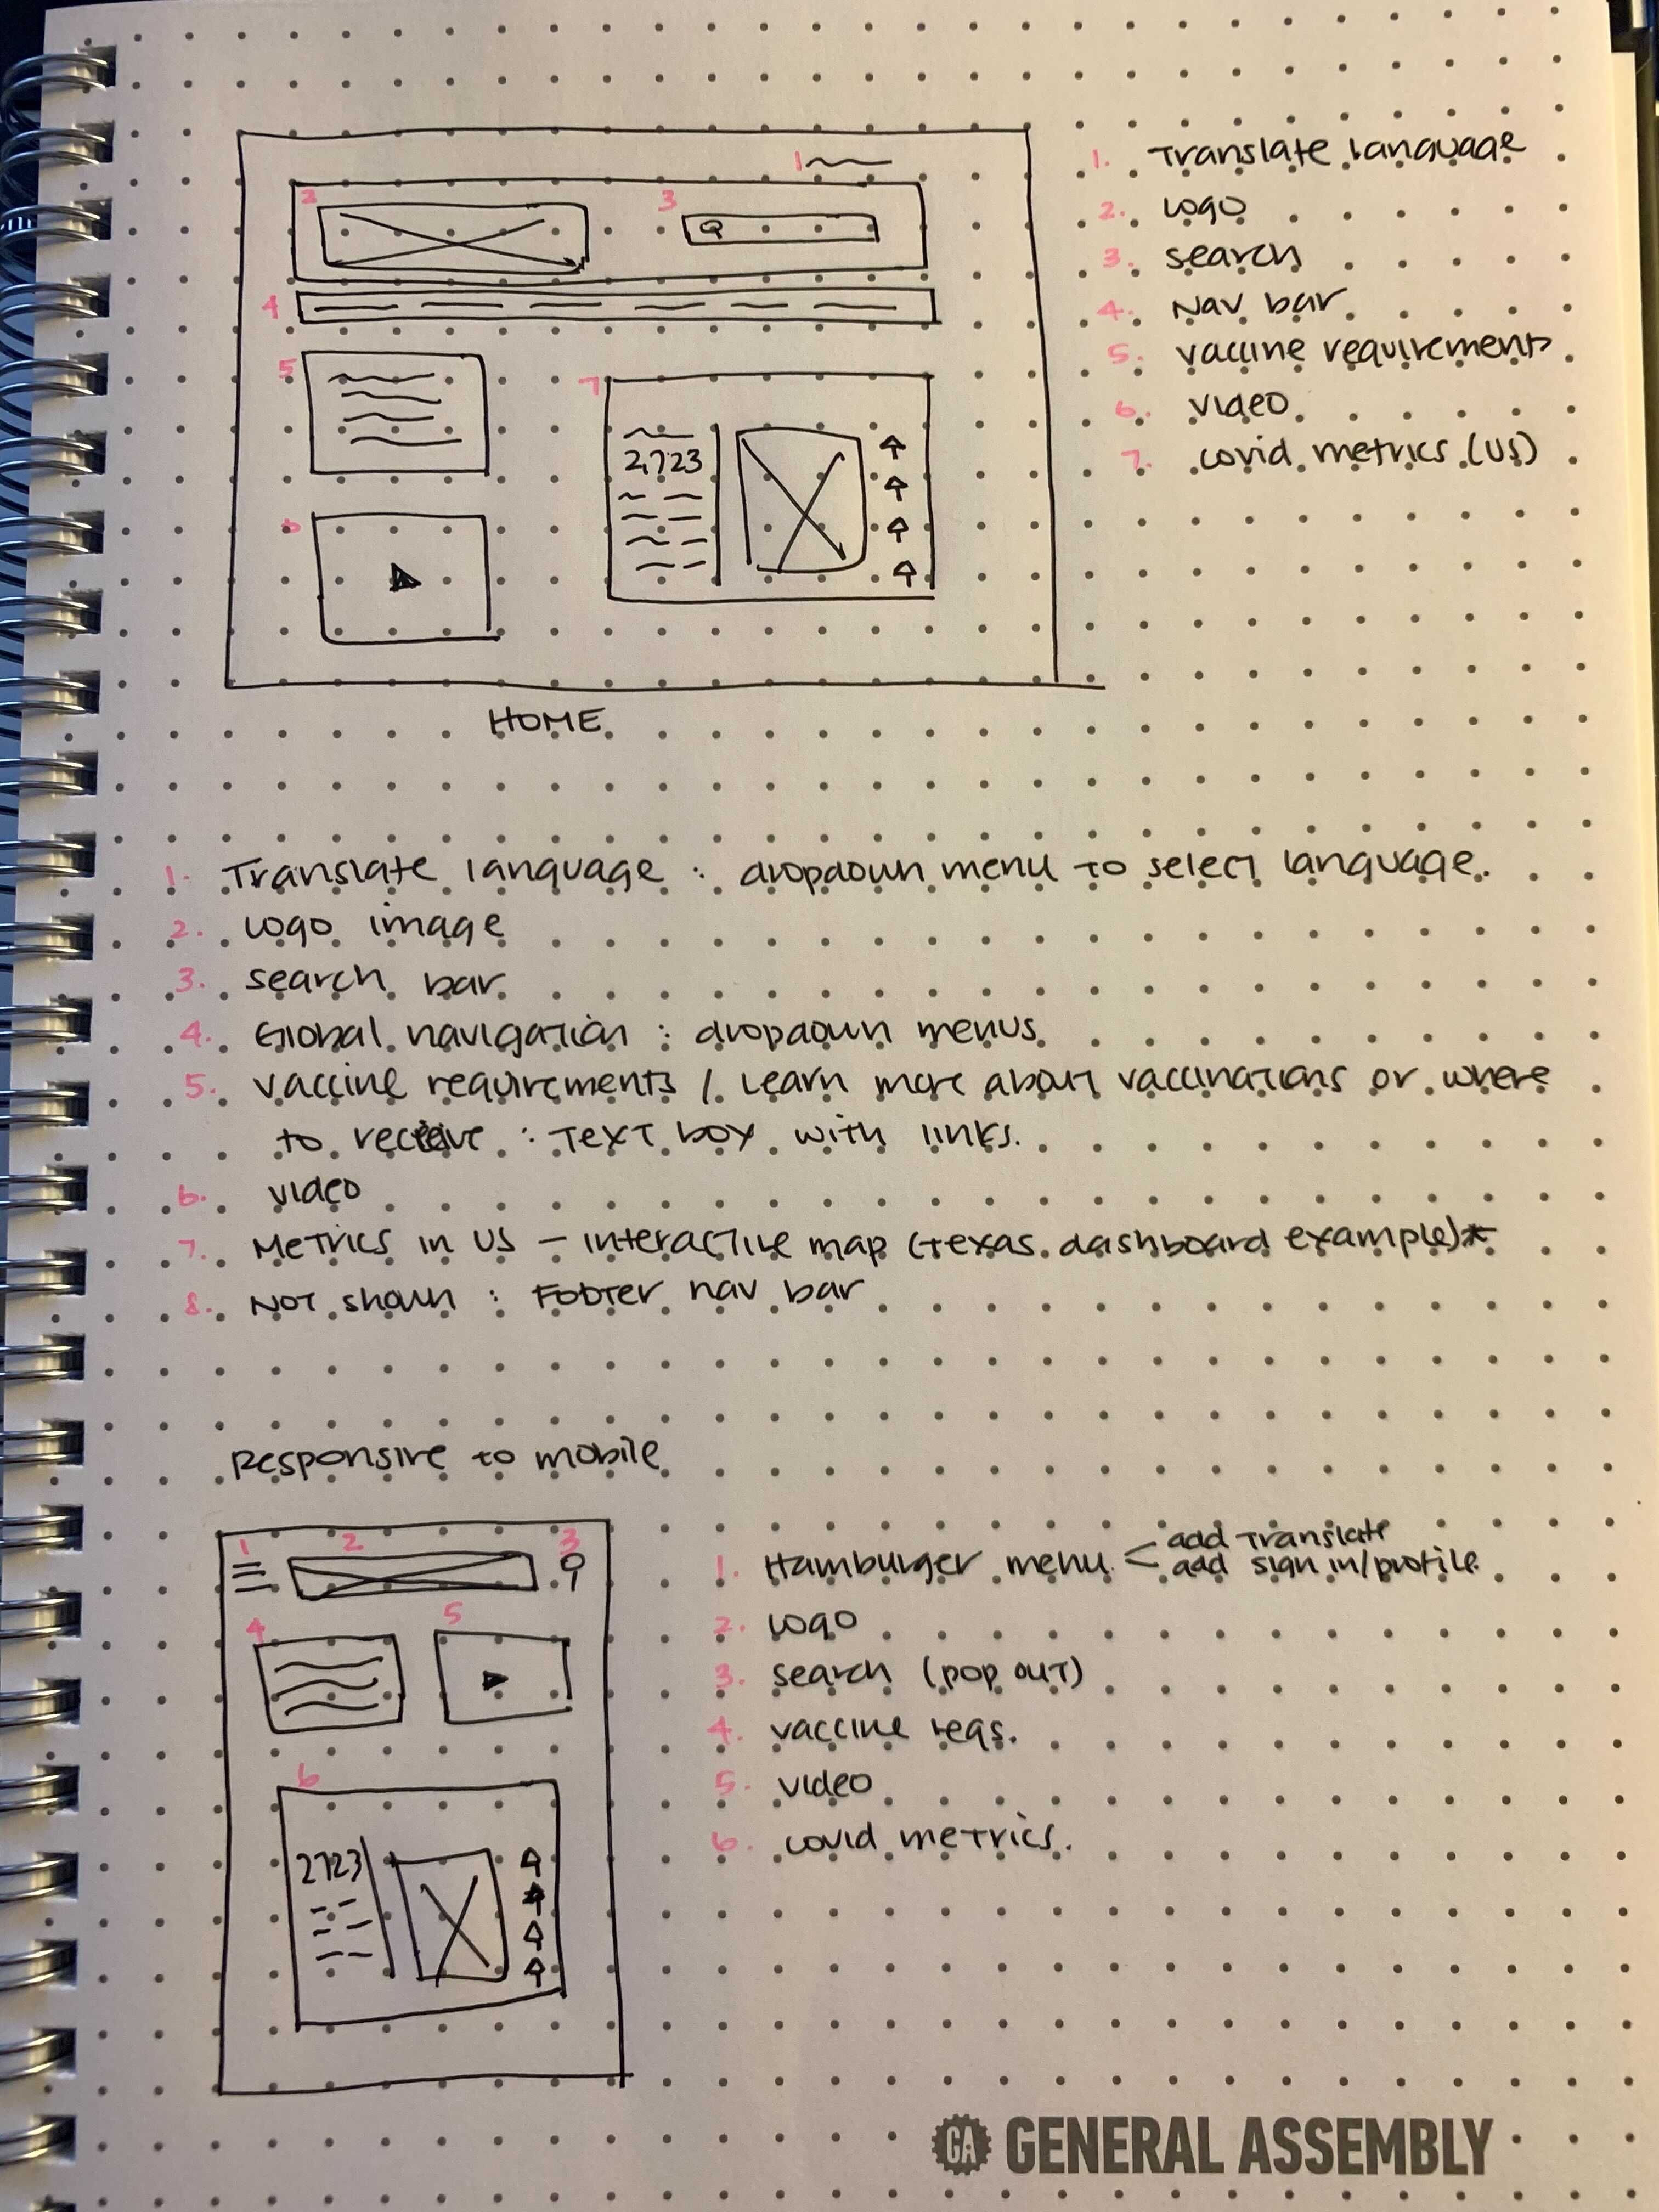 1. Translate language
2. Logo
3. search
4. Nav bar
5. vaccine requirements
6. video
7. covid metrics (US)
1
2
3
Q
4
5
7
2,723
6
HOME
1. Translate language : dropdown menu to select language.
2. Logo image
3. search bar
4. Global navigation : dropdown menus
5. vaccine requirements / Learn more about vaccinations or where
to receive : Text box with links.
6. video
7. Metrics in US – interactive map (texas dashboard example)*
8. NOT shown : Footer nav bar
Responsive to mobile
1 2 3
4 5
6
2723
1. Hamburger menu < add translate
add sign in/profile
2. logo
3. search (pop out)
4. vaccine reqs.
5. video
6. covid metrics.
GA GENERAL ASSEMBLY